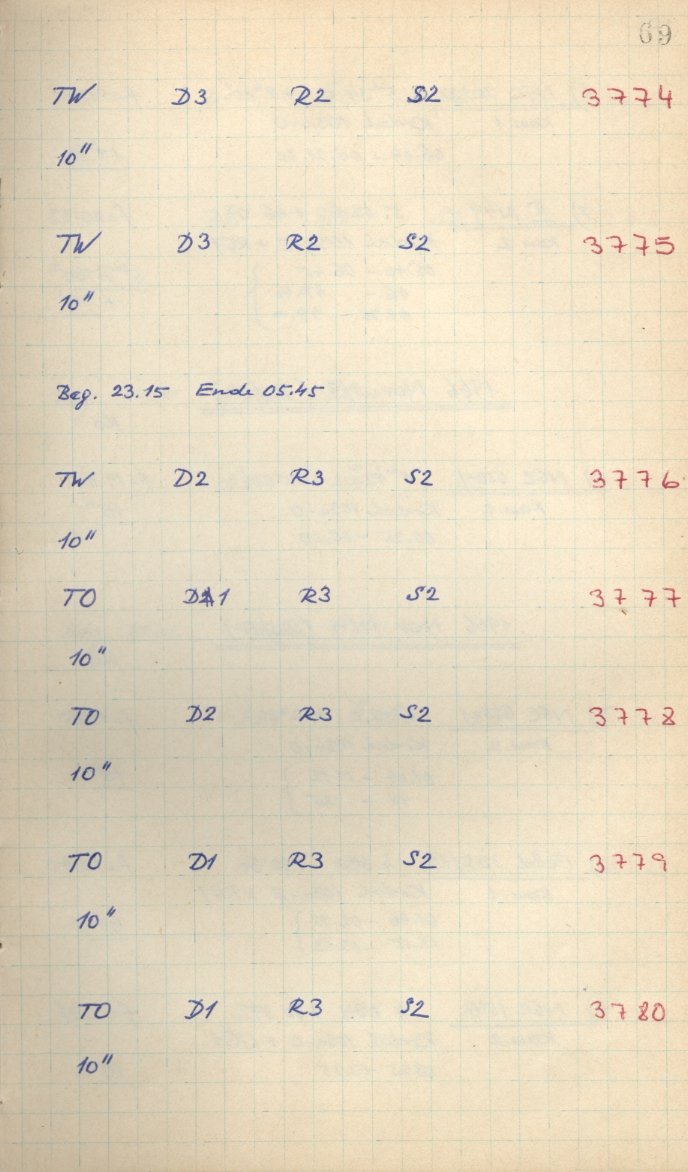 69
TW D3 R2 S2 3774
10"
TW D3 R2 S2 3775
10"
Beg. 23.15 Ende 05.45
TW D2 R3 S2 3776
10"
TO D1 R3 S2 3777
10"
TO D2 R3 S2 3778
10"
TO D1 R3 S2 3779
10"
TO D1 R3 S2 3780
10"